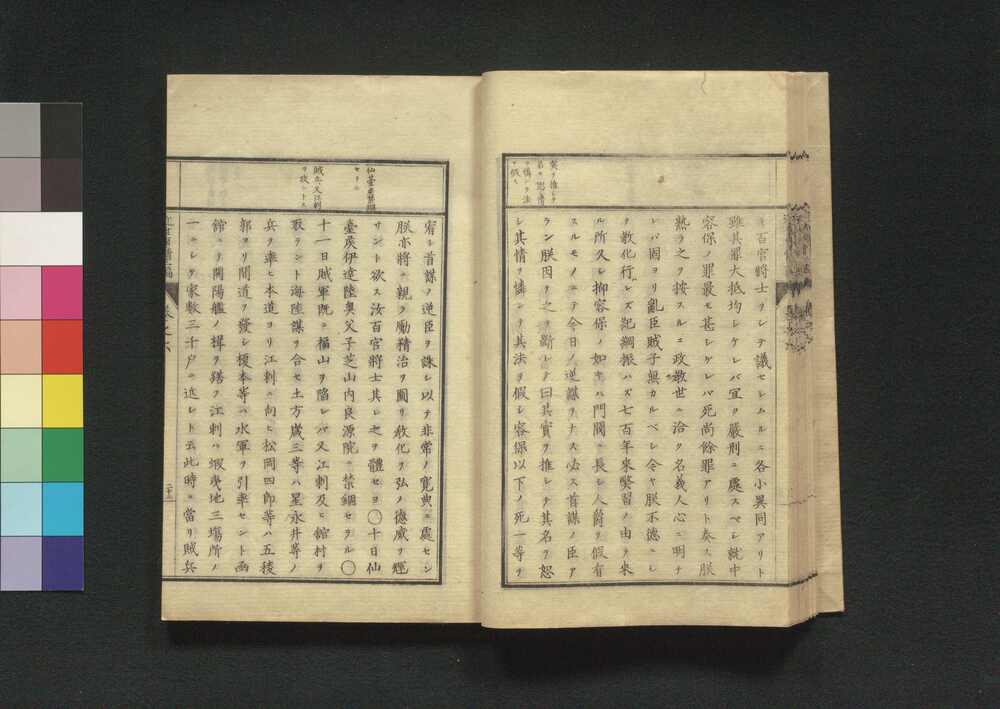 其實ヲ推シテ
其名ヲ恕シ其情
ヲ憐ンテ法
ヲ假ス
ヲ百官將士ヲシテ議セシムルニ各小異同アリト
雖其罪大抵均シケレバ宜ク嚴刑ニ處スベシ就中
容保ノ罪最モ甚シケレバ死尚餘罪アリト奏ス朕
熟ラ之ヲ按スルニ政教世ニ洽ク名義人心ニ明ナ
レバ固ヨリ亂臣賊子無カルベシ今ヤ朕不德ニシ
テ教化行レズ紀綱振ハズ七百年來弊習ノ由テ來
ル所久シ抑容保ノ如キハ門閥ニ長シ人爵ヲ假有
スルモノニテ今日ノ逆謀ヲナス必ス首謀ノ臣ア
ラン朕因テ之ヲ斷シテ曰其實ヲ推シテ其名ヲ恕
シ其情ヲ憐レテ其法ヲ假シ容保以下ノ死一等ヲ
仙臺矦禁錮
セラル
賊亦又江刺
ヲ攻ントス
宥シ首謀ノ逆臣ヲ誅シ以テ非常ノ寛典ニ處セシ
朕亦將ニ親ラ勵精治ヲ圖リ教化ヲ弘ノ德威ヲ輝
サント欲ス汝百官將士其レ之ヲ體セヨ〇十日仙
臺矦伊達陸奥父子芝山内良源院ニ禁錮セラル〇
十一日賊軍既ニ福山ヲ陷レバ又江刺及ヒ舘村ヲ
取ラント海陸謀ヲ合セ土方歳三等ハ星永井等ノ
兵ヲ率ヒ本道ヨリ江刺ニ向ヒ松岡四郎等ハ五稜
郭ヨリ間道ヲ發シ榎本等ハ水軍ヲ引率セント函
舘ニテ開陽艦ノ楫ヲ繕フ江刺ハ蝦夷地三塲所ノ
一ニシテ家數三千戸ニ近シト云此時ニ當リ賊兵